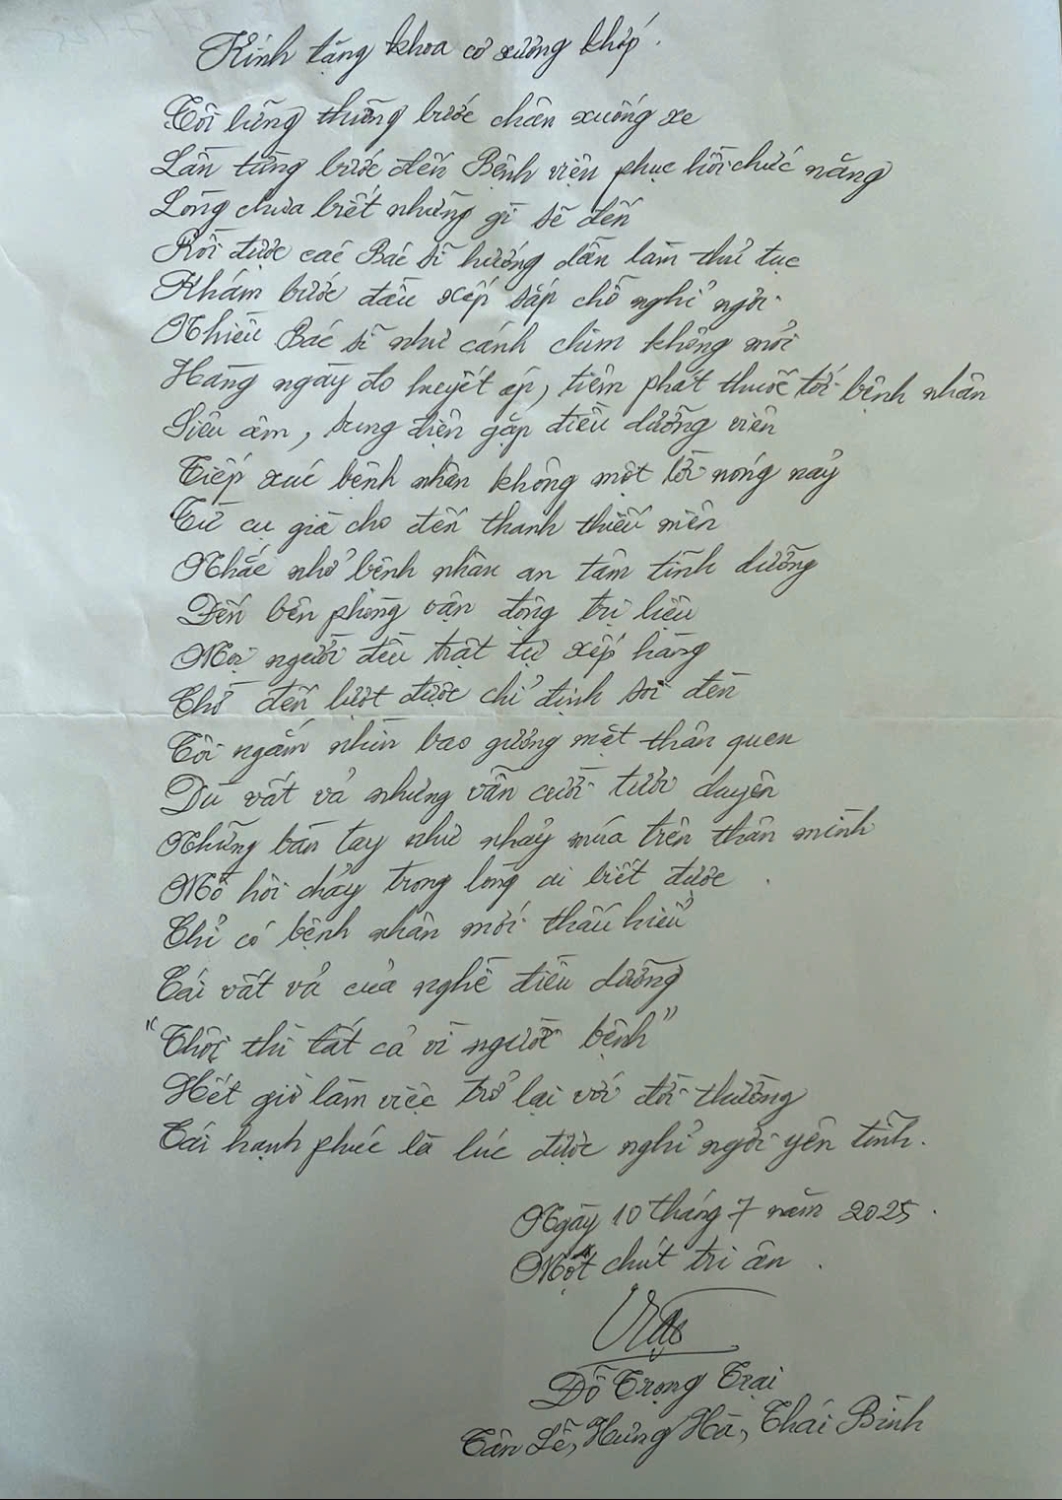 Kính tặng khoa cơ xương khớp.
Tôi lững thững bước chân xuống xe
Lần từng bước đến Bệnh viện phục hồi chức năng
Lòng chưa biết những gì sẽ đến
Rồi được các Bác sĩ hướng dẫn làm thủ tục
Khám bước đầu xếp sắp chỗ nghỉ ngơi
Nhiều Bác sĩ như cánh chim không mỏi
Hàng ngày đo huyết áp, tiêm phát thuốc tới bệnh nhân
Siêu âm, xung điện gặp điều dưỡng viên
Tiếp xúc bệnh nhân không một lời nóng nảy
Từ cụ già cho đến thanh thiếu niên
Nhắc nhở bệnh nhân an tâm tĩnh dưỡng
Đến bên phòng vận động trị liệu
Mọi người đều trật tự xếp hàng
Chờ đến lượt được chỉ định soi đèn
Tôi ngắm nhìn bao gương mặt thân quen
Dù vất vả nhưng vẫn cười tươi duyên
Những bàn tay như nhảy múa trên thân mình
Mồ hôi chảy trong lòng ai biết được
Chỉ có bệnh nhân mới thấu hiểu
Cái vất vả của nghề điều dưỡng
"Thôi thì tất cả vì người bệnh"
Hết giờ làm việc trở lại với đời thường
Cái hạnh phúc là lúc được nghỉ ngơi yên tĩnh.
Ngày 10 tháng 7 năm 2025.
Một chút tri ân.
Đỗ Trọng Trại
Tân Lễ, Hưng Hà, Thái Bình